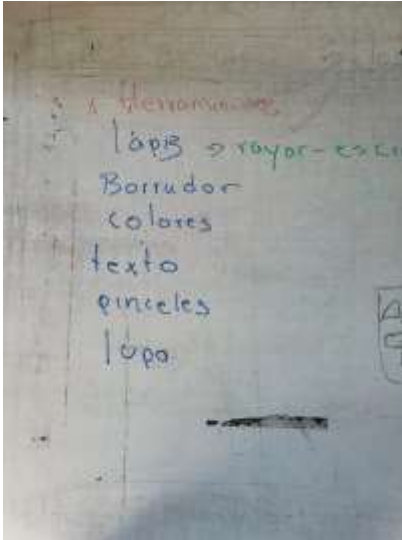 x Herramientas
lápiz → rayar - esc
Borrador
colores
texto
pinceles
lupa